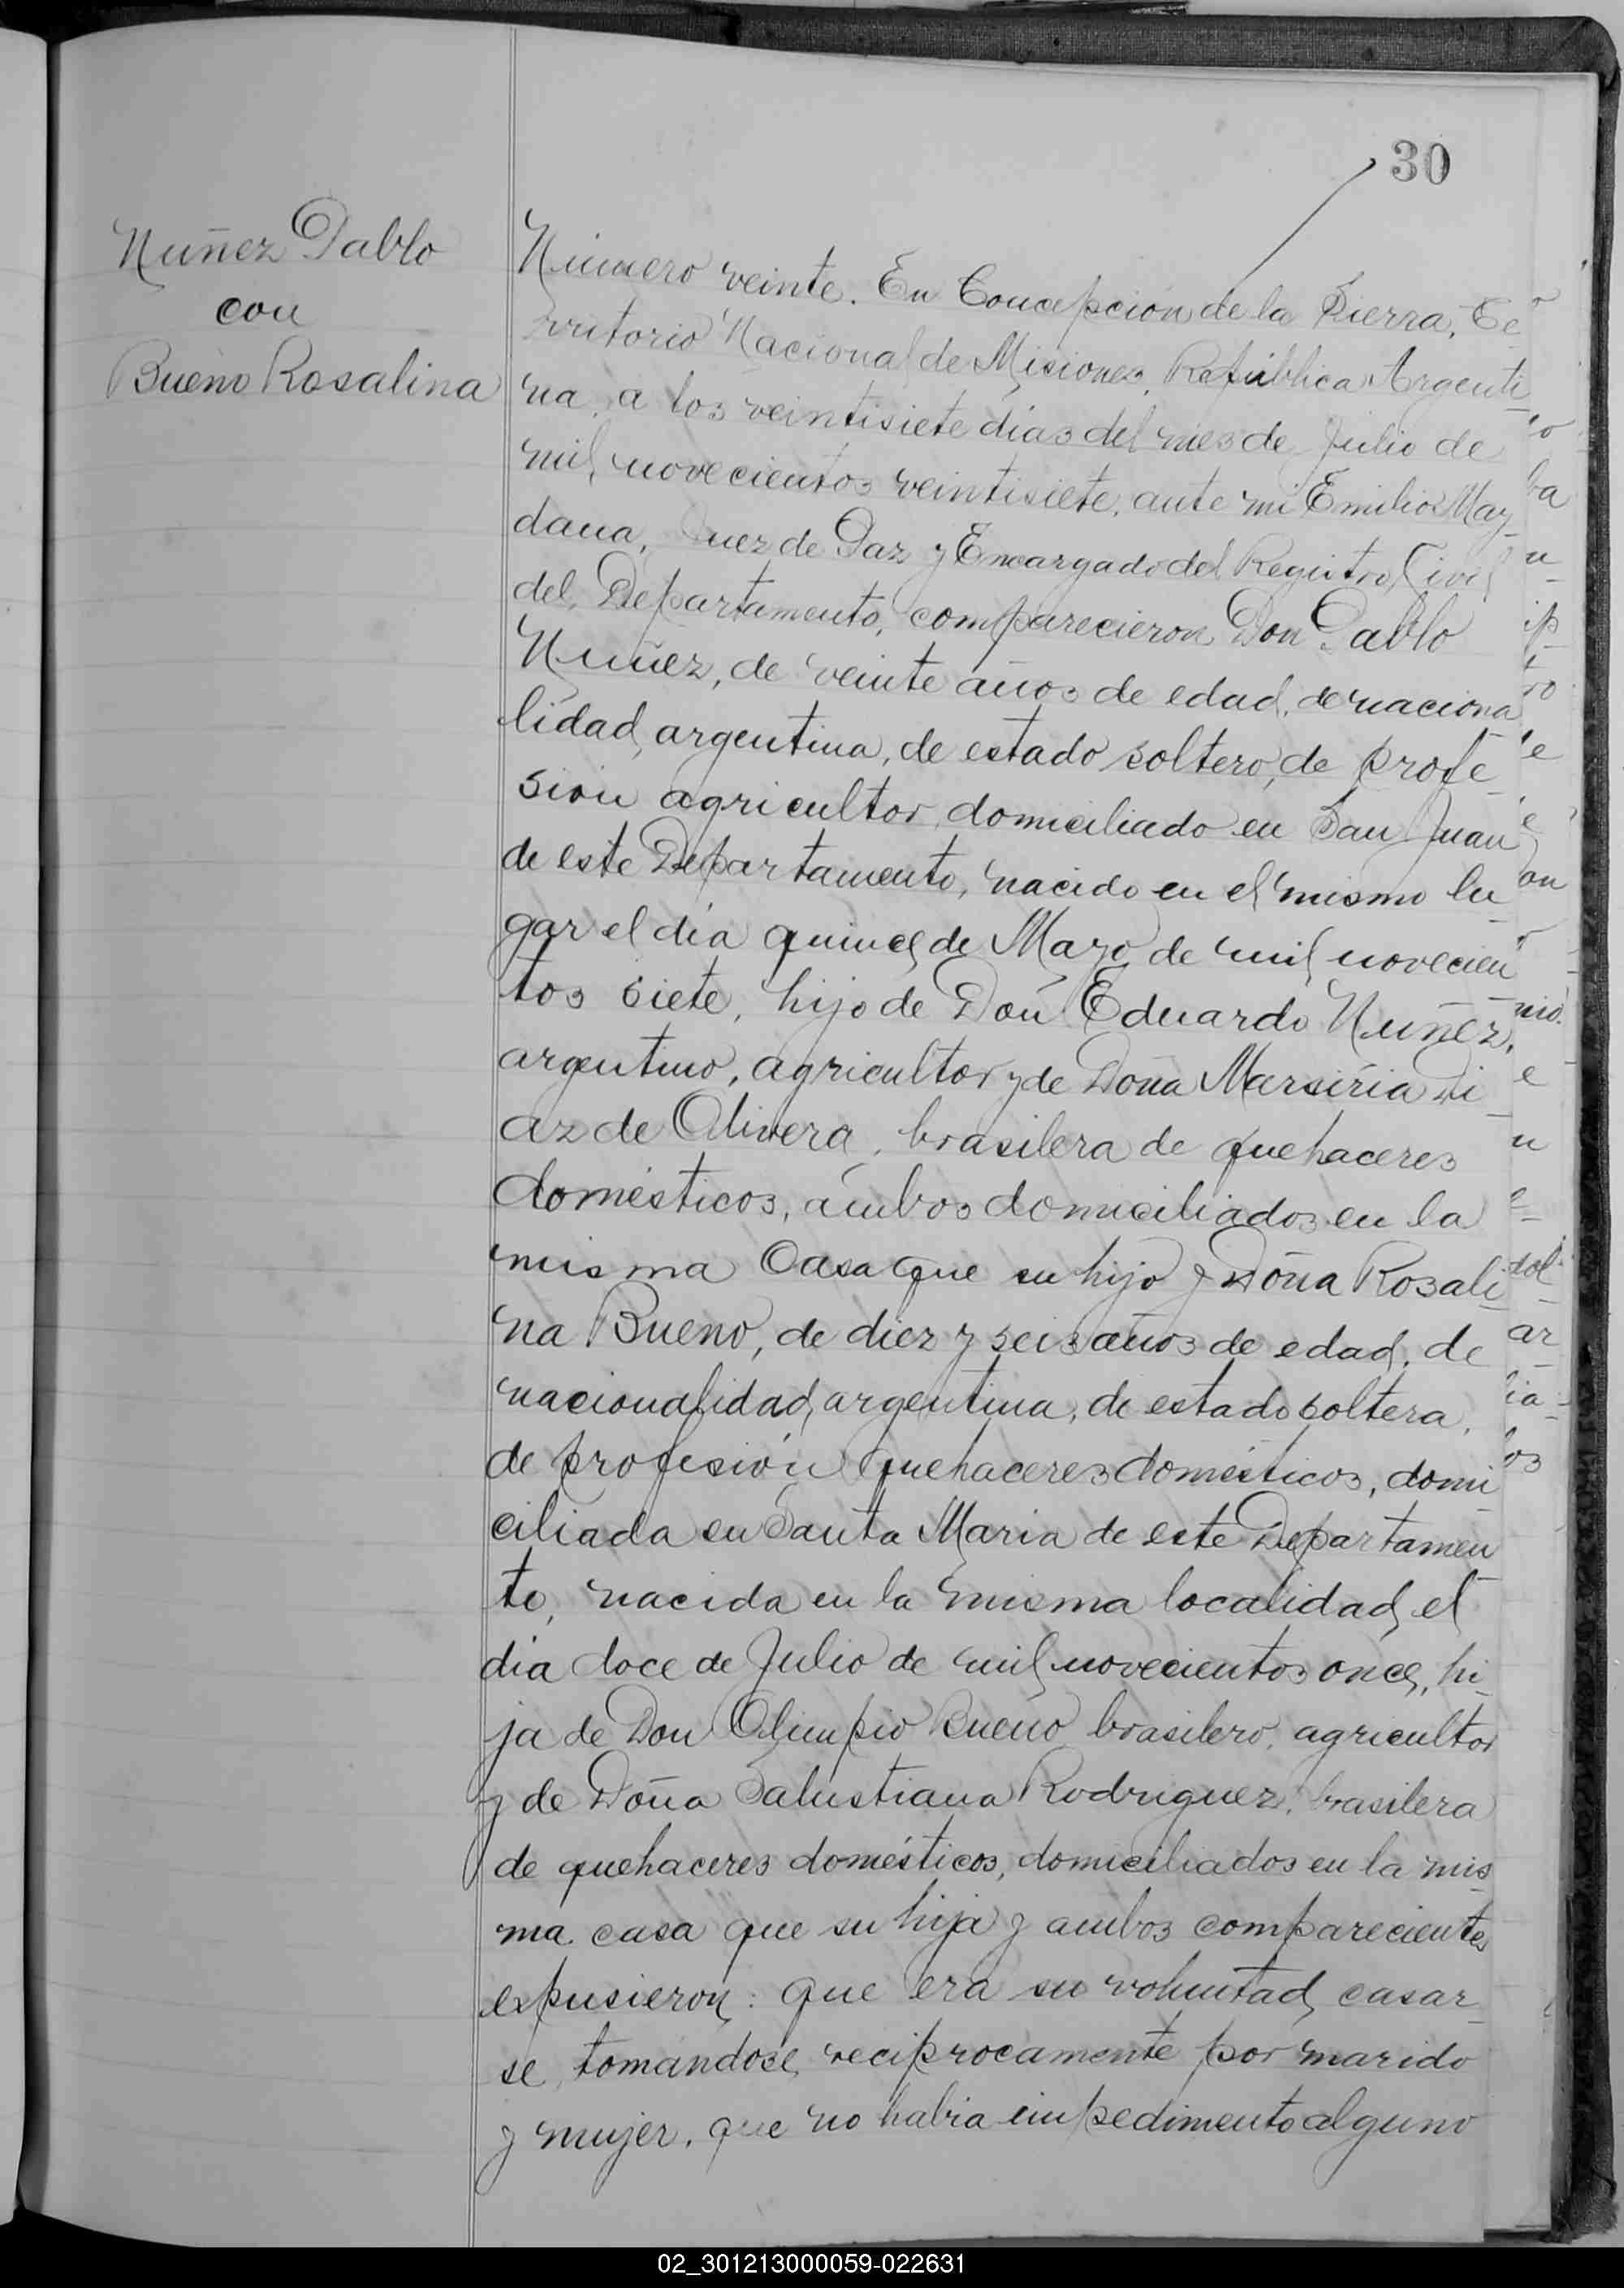 30
Nuñez Pablo
con
Bueno Rosalina
Número veinte. En Concepción de la Sierra, Te
rritorio Nacional de Misiones, República Argenti
na, a los veintisiete días del mes de Julio de
mil novecientos veintisiete, ante mi Emilio May
dana, Juez de Paz y Encargado del Registro Civil
del Departamento, comparecieron Don Pablo
Nuñez, de veinte años de edad, de naciona
lidad argentina, de estado soltero, de profe
sión agricultor, domiciliado en San Juan
de este Departamento, nacido en el mismo lu
gar el día quince de Mayo de mil novecien
tos siete, hijo de Don Eduardo Nuñez,
argentino, agricultor y de Doña Marsiria Di
az de Olivera, brasilera de quehaceres
domésticos, ambos domiciliados en la
misma casa que su hijo y Doña Rosali
na Bueno, de diez y seis años de edad, de
nacionalidad argentina, de estado soltera,
de profesión quehaceres domésticos, domi
ciliada en Santa Maria de este Departamen
to, nacida en la misma localidad el
día doce de Julio de mil novecientos once, hi
ja de Don Olimpio Bueno brasilero, agricultor
y de Doña Salustiana Rodriguez, brasilera
de quehaceres domésticos, domiciliados en la mis
ma casa que su hija y ambos comparecientes
expusieron: que era su voluntad casar
se, tomandose reciprocamente por marido
y mujer, que no habia impedimento alguno
02_301213000059-022631